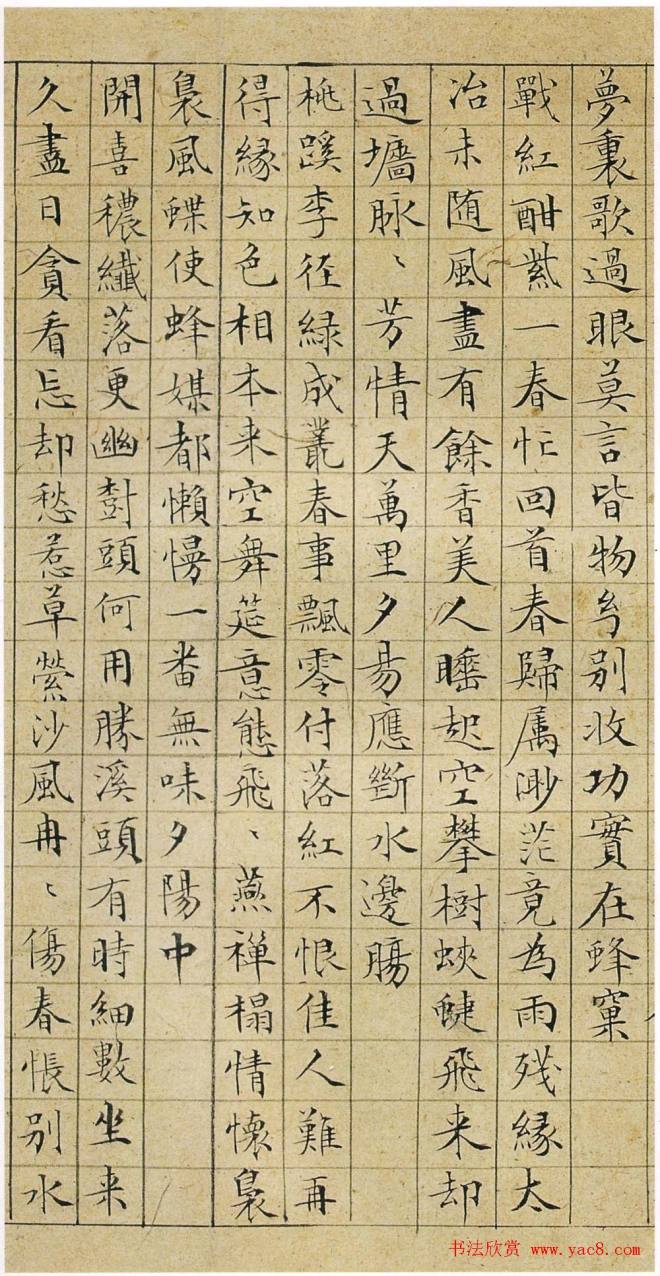 夢裏歌過眼莫言皆物幻別收功實在蜂窠
戰紅酣紫一春忙回首春歸属渺茫竟為雨残緣太
冶未随風盡有餘香美人睡起空攀樹蛺蝶飛来却
過墻脉〻芳情天萬里夕昜應斷水邊腸
桃蹊李径緑成叢春事飄零付落紅不恨佳人難再
得緣知色相本来空舞筵意態飛〻燕禅榻情懷裊
裊風蝶使蜂媒都懶慢一番無味夕陽中
開喜穠纖落更幽樹頭何用勝溪頭有時細數坐来
久盡日貪看忘却愁惹草縈沙風冉〻傷春悵別水
书法欣赏 www.yac8.com